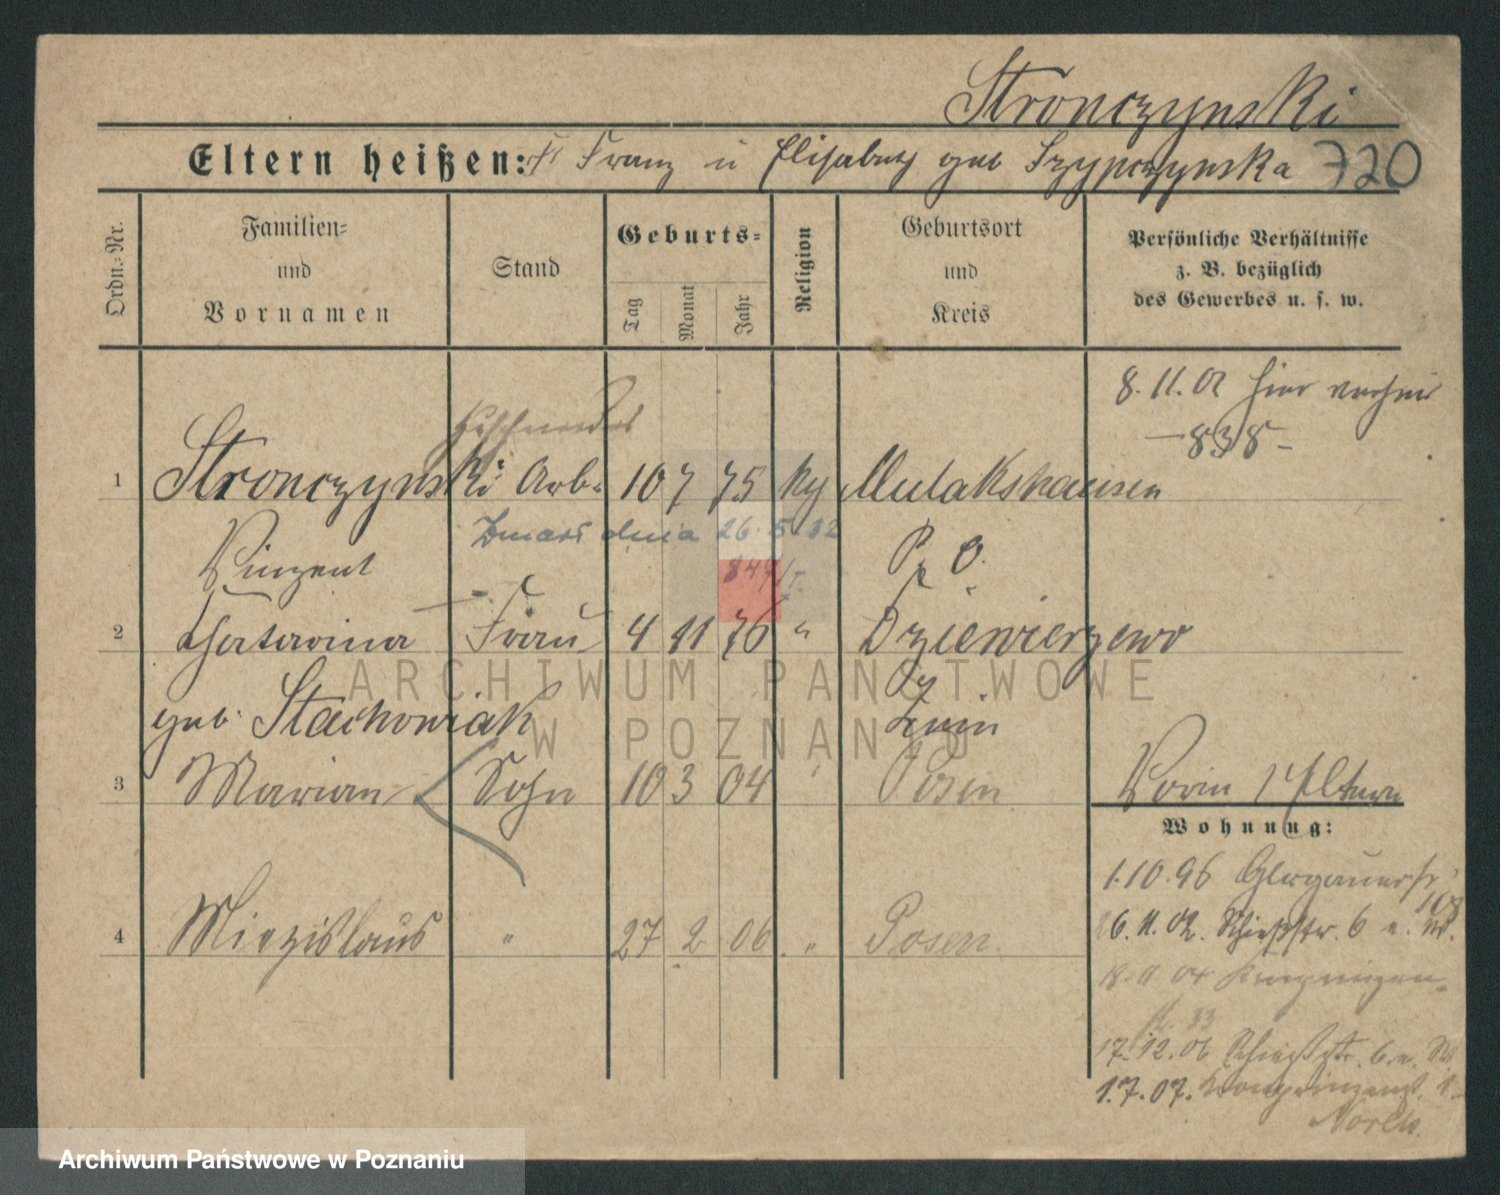 Stronczynski
Eltern heißen: Franz u Elisabeth geb Szypczynska 720
Ordn.-Nr.
Familien- und Vornamen
Stand
Geburts-
Tag Monat Jahr
Religion
Geburtsort und Kreis
Persönliche Verhältnisse
z. B. bezüglich
des Gewerbes u. s. w.
8.11.02 hier verheir
-838-
1 Stronczynski Arb. 10 7 75 kg Mulakshausen
Zmarł dnia 26.5.12
Vinzent P. O.
2 Katarina Frau 4 11 76 " Dziewierzewo
geb. Stachowiak Znin
3 Marian Sohn 10 3 04 Posen
Vorm Eltern
Wohnung:
1.10.96 Glogauerstr
4 Miezislaus " 27 2 06 " Posen
26.11.02. Schießstr. 6
18.11.04
33
17.12.06 Schießstr. 6
1.7.07. Kronprinzenst. 1
ARCHIWUM PAŃSTWOWE
W POZNANIU
Archiwum Państwowe w Poznaniu